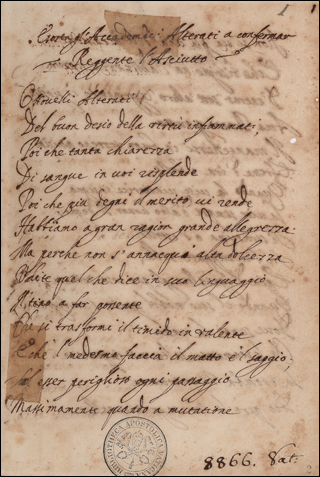 1
Esorta gl'Accademici Alterati a confermar
Reggente l'Asciutto
Alterati
Del buon desio della virtù infiammati
Poi che tanta chiarezza
Di sangue in voi risplende
Poi che più degni il merito vi rende
Habbiamo a gran ragion grande allegrezza.
Ma perche non s'annacqui alta dolcezza
quel che dice in suo linguaggio
a far
si trasformi il timido in valente
E che 'l medesmo faccia il matto e 'l saggio;
esser periglioso ogni passaggio
Massimamente quando a mutatione
BIBLIOTHECA APOSTOLICA VATICANA
8866. Vat: